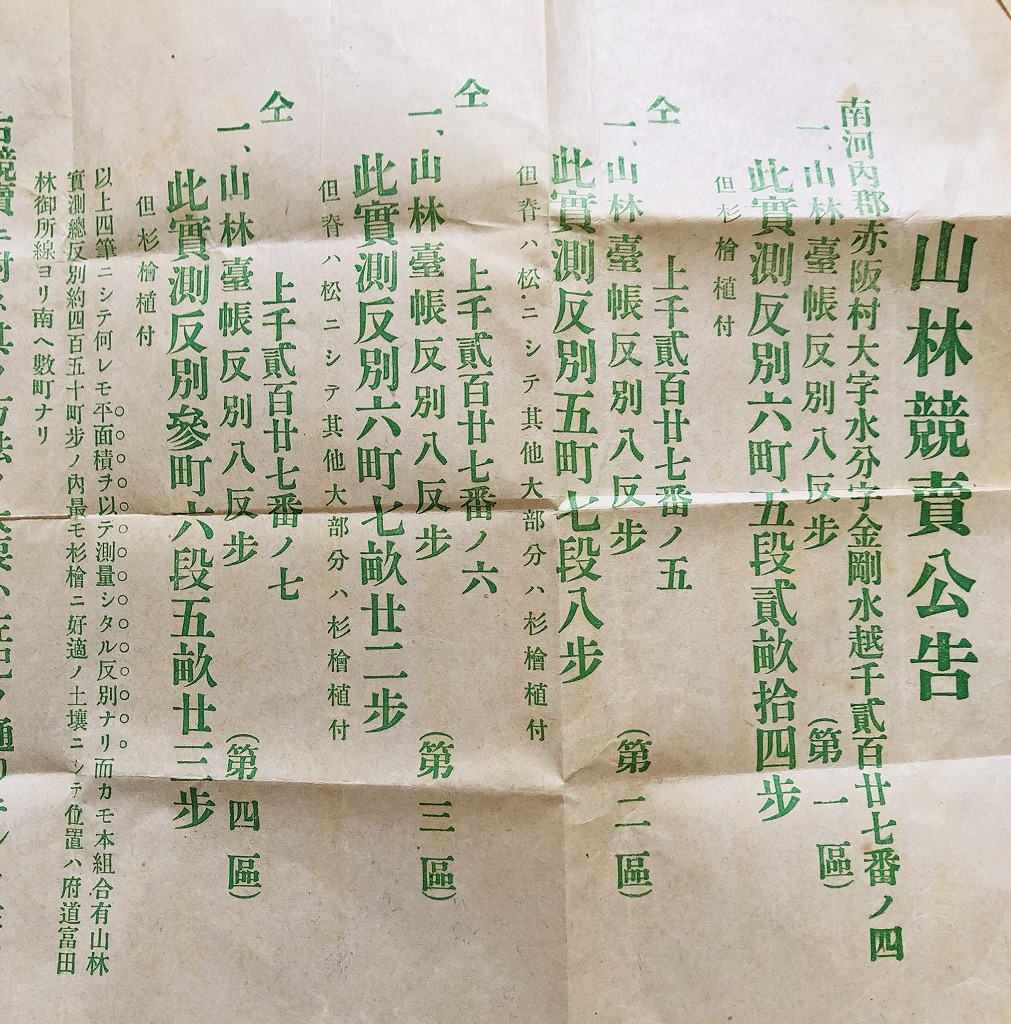 山林競賣公告
南河內郡赤阪村大字水分字金剛水越千貳百廿七番ノ四
一、山林臺帳反別八反步 (第一區)
此實測反別六町五段貳畝拾四步
但杉檜植付
仝 上千貳百廿七番ノ五
一、山林臺帳反別八反步 (第二區)
此實測反別五町七段八步
但脊ハ松ニシテ其他大部分ハ杉檜植付
仝 上千貳百廿七番ノ六
一、山林臺帳反別八反步 (第三區)
此實測反別六町七畝廿二步
但脊ハ松ニシテ其他大部分ハ杉檜植付
仝 上千貳百廿七番ノ七
一、山林臺帳反別八反步 (第四區)
此實測反別參町六段五畝廿三步
但杉檜植付
以上四筆ニシテ何レモ平面積ヲ以テ測量シタル反別ナリ而カモ本組合有山林
實測總反別約四百五十町步ノ內最モ杉檜ニ好適ノ土壤ニシテ位置ハ府道富田
林御所線ヨリ南ヘ數町ナリ